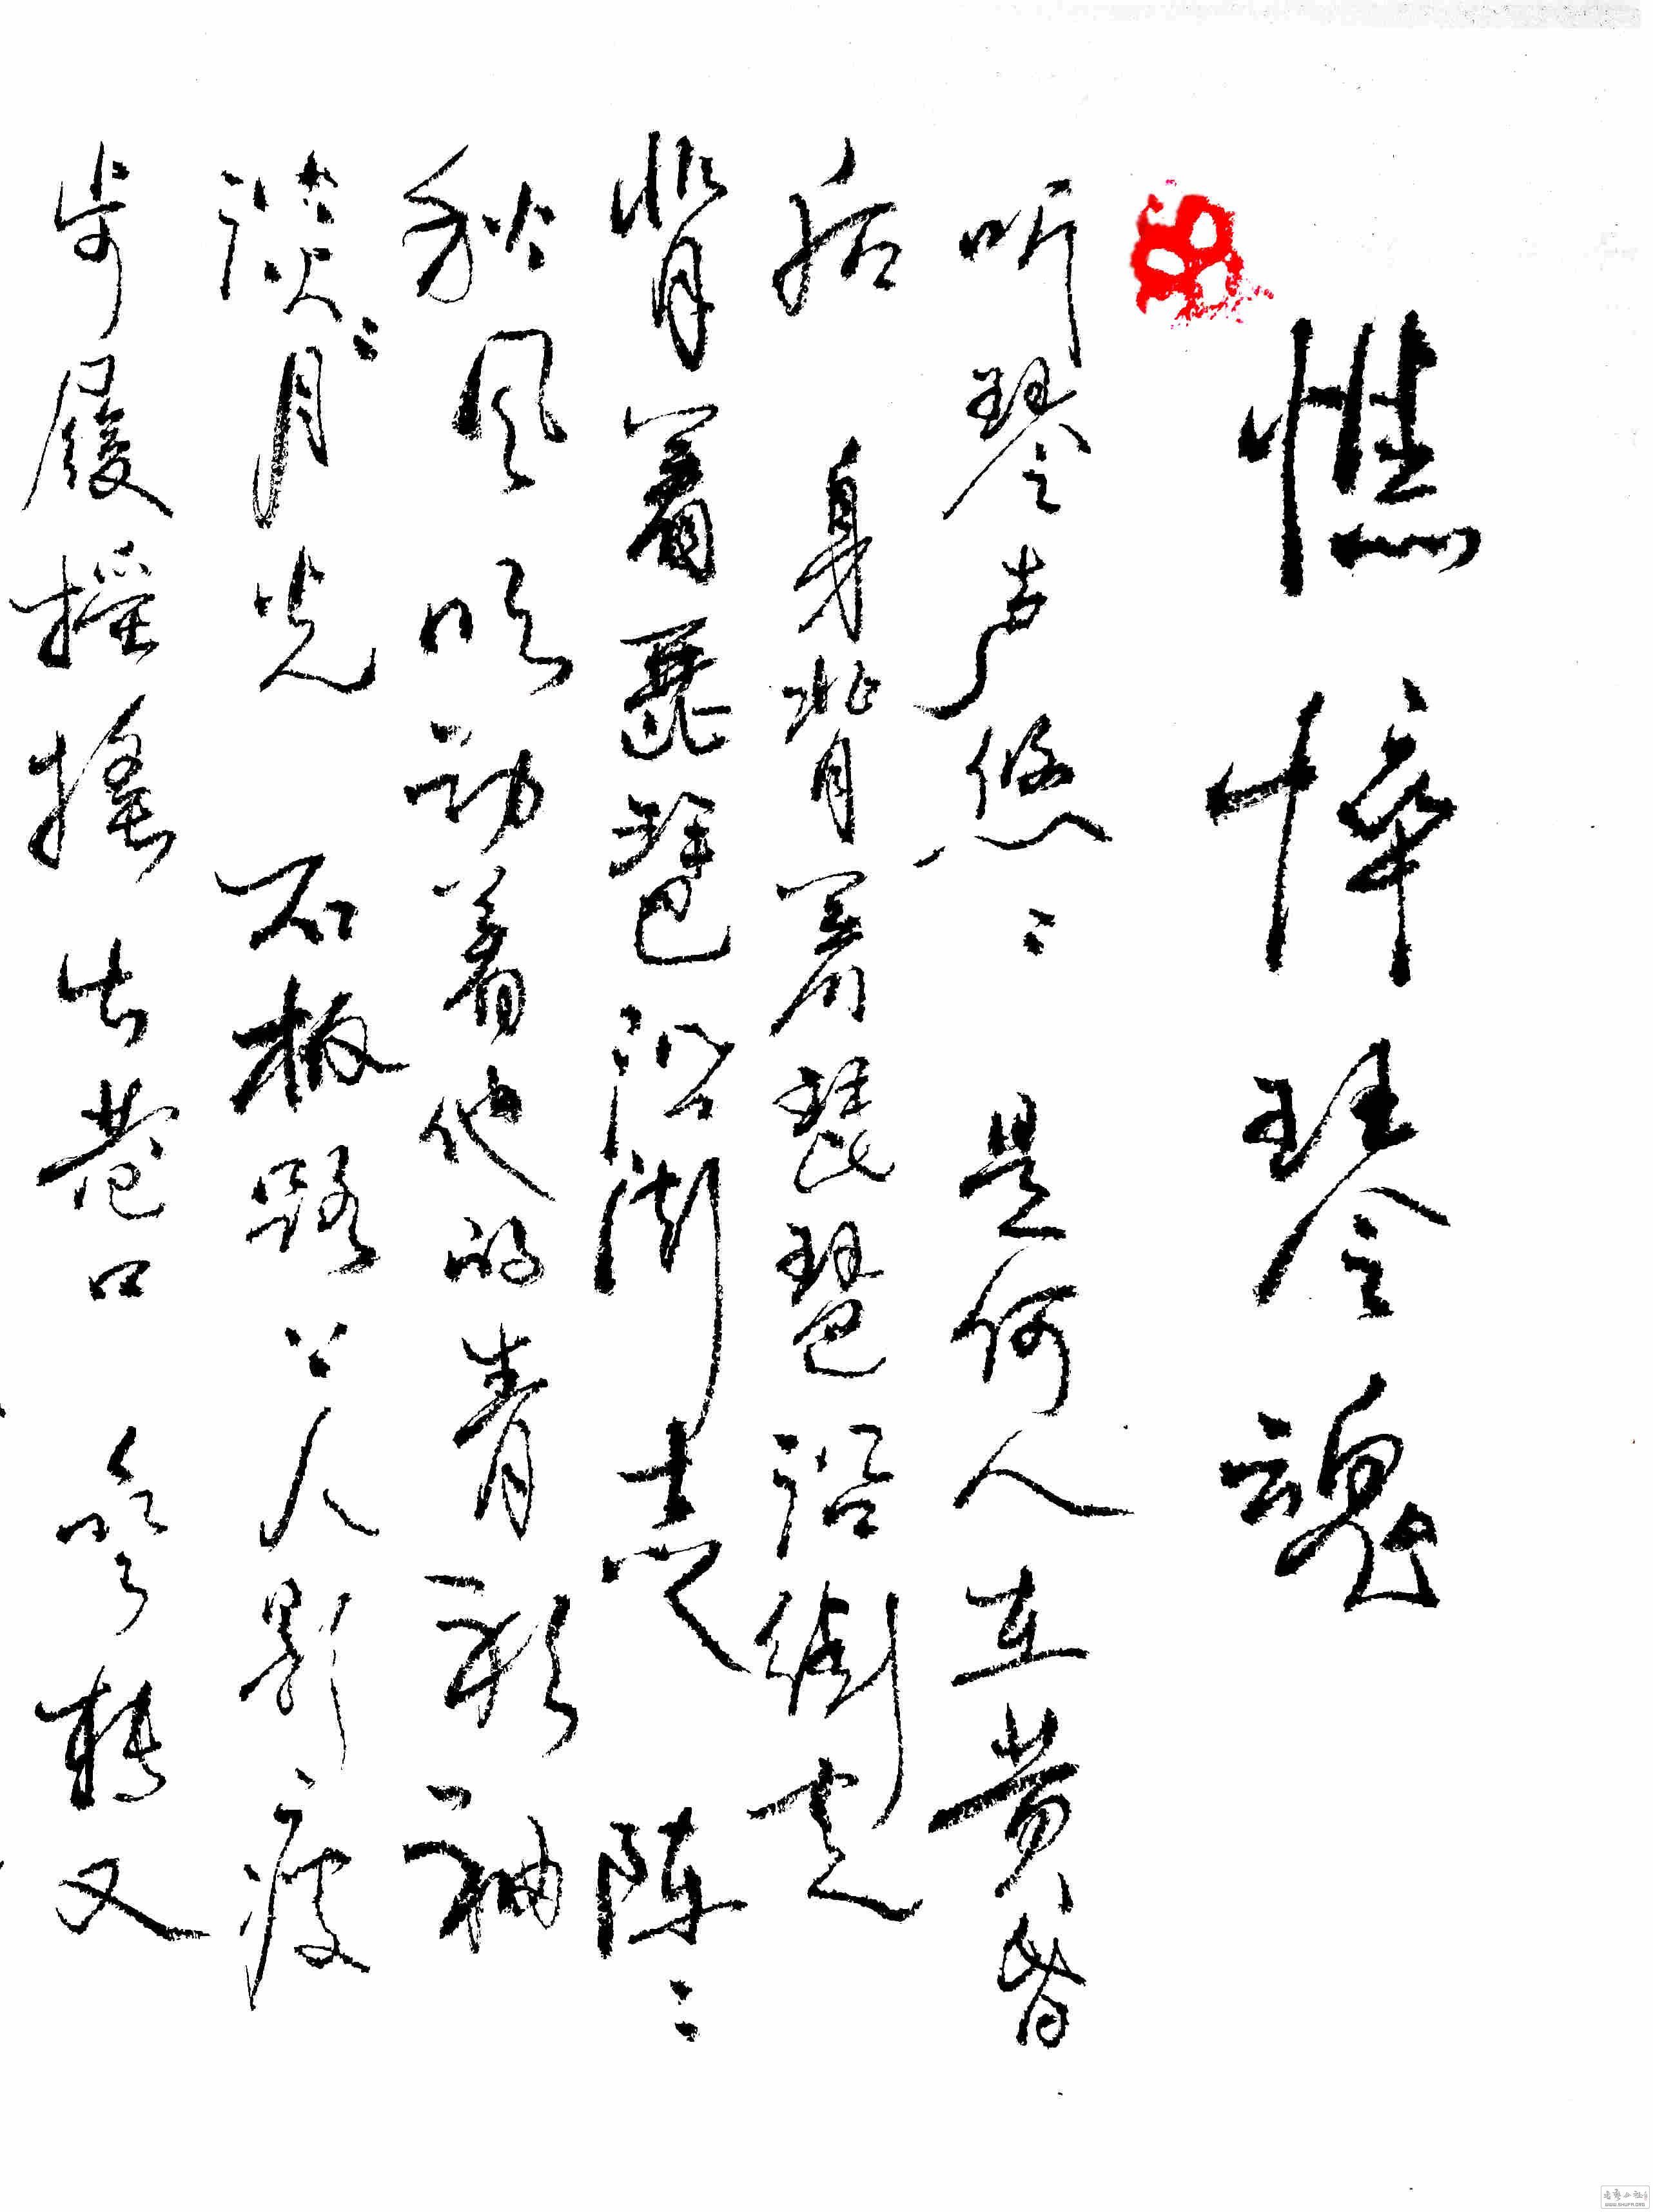 憔悴琴魂
听琴声悠〻是何人在黄昏
后身背着琵琶沿街走
背着琵琶沿街走阵〻
秋风吹动着他的青衫袖
淡〻月光石板路上人影瘦
步履摇摇出巷口转又